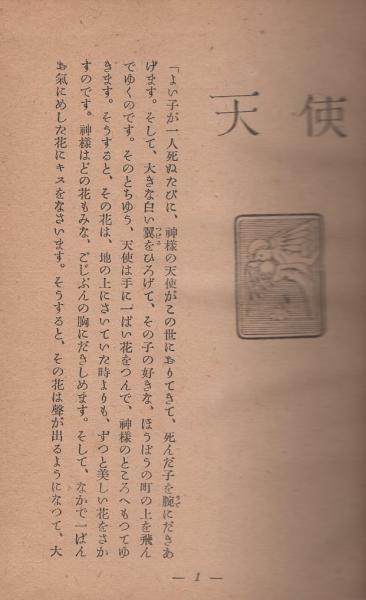 天使
「よい子が一人死ぬたびに、神様の天使がこの世におりてきて、死んだ子を腕にだきあ
げます。そして、大きな白い翼をひろげて、その子の好きな、ほうぼうの町の上を飛ん
でゆくのです。そのとちゆう、天使は手に一ぱい花をつんで、神様のところへもつてゆ
きます。そうすると、その花は、地の上にさいていた時よりも、ずつと美しい花をさか
すのです。神様はどの花もみな、ごじぶんの胸にだきしめます。そして、なかで一ばん
お氣にめした花にキスをなさいます。そうすると、その花は聲が出るようになつて、大
— 1 —